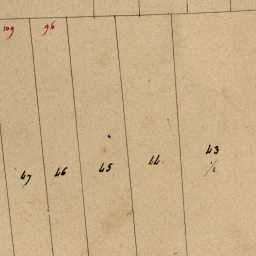 109 96
47 46 45 44 43
1/2